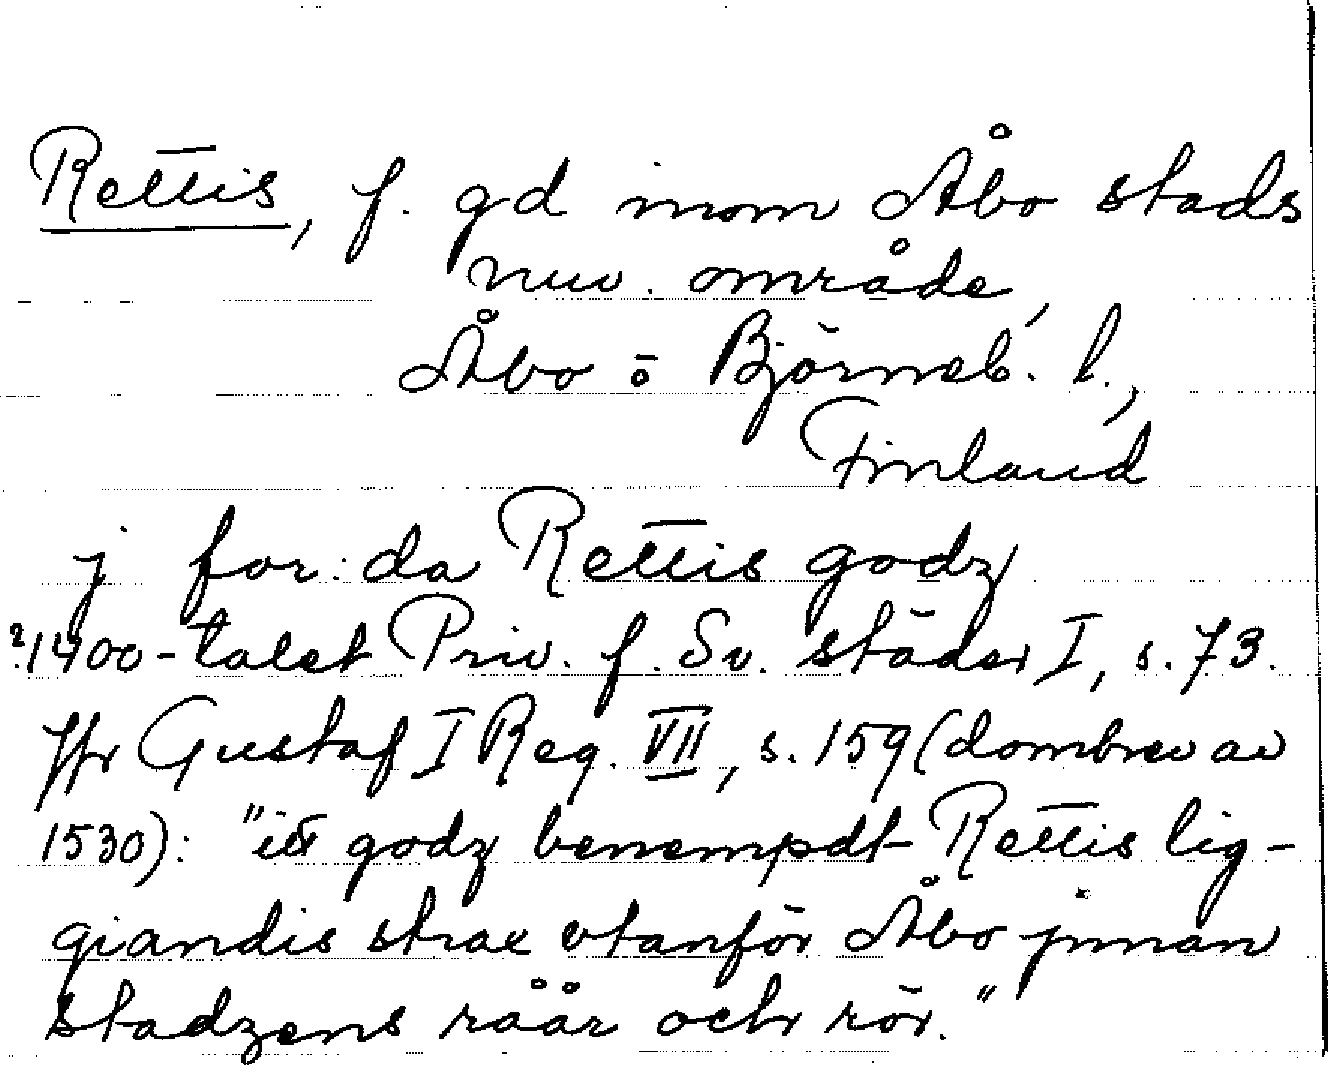 Rettis, f. gd inom Åbo stads
nuv. område,
Åbo o Björneb. l.,
Finland
j for:da Rettis godz
?1400-talet Priv. f. Sv. städer I, s. 73.
Jfr Gustaf I Reg. VII, s. 159 (dombrev av
1530): "itt godz benempdt Rettis lig-
giandis strax vtanför Åbo jnnan
stadzens råår och rör."